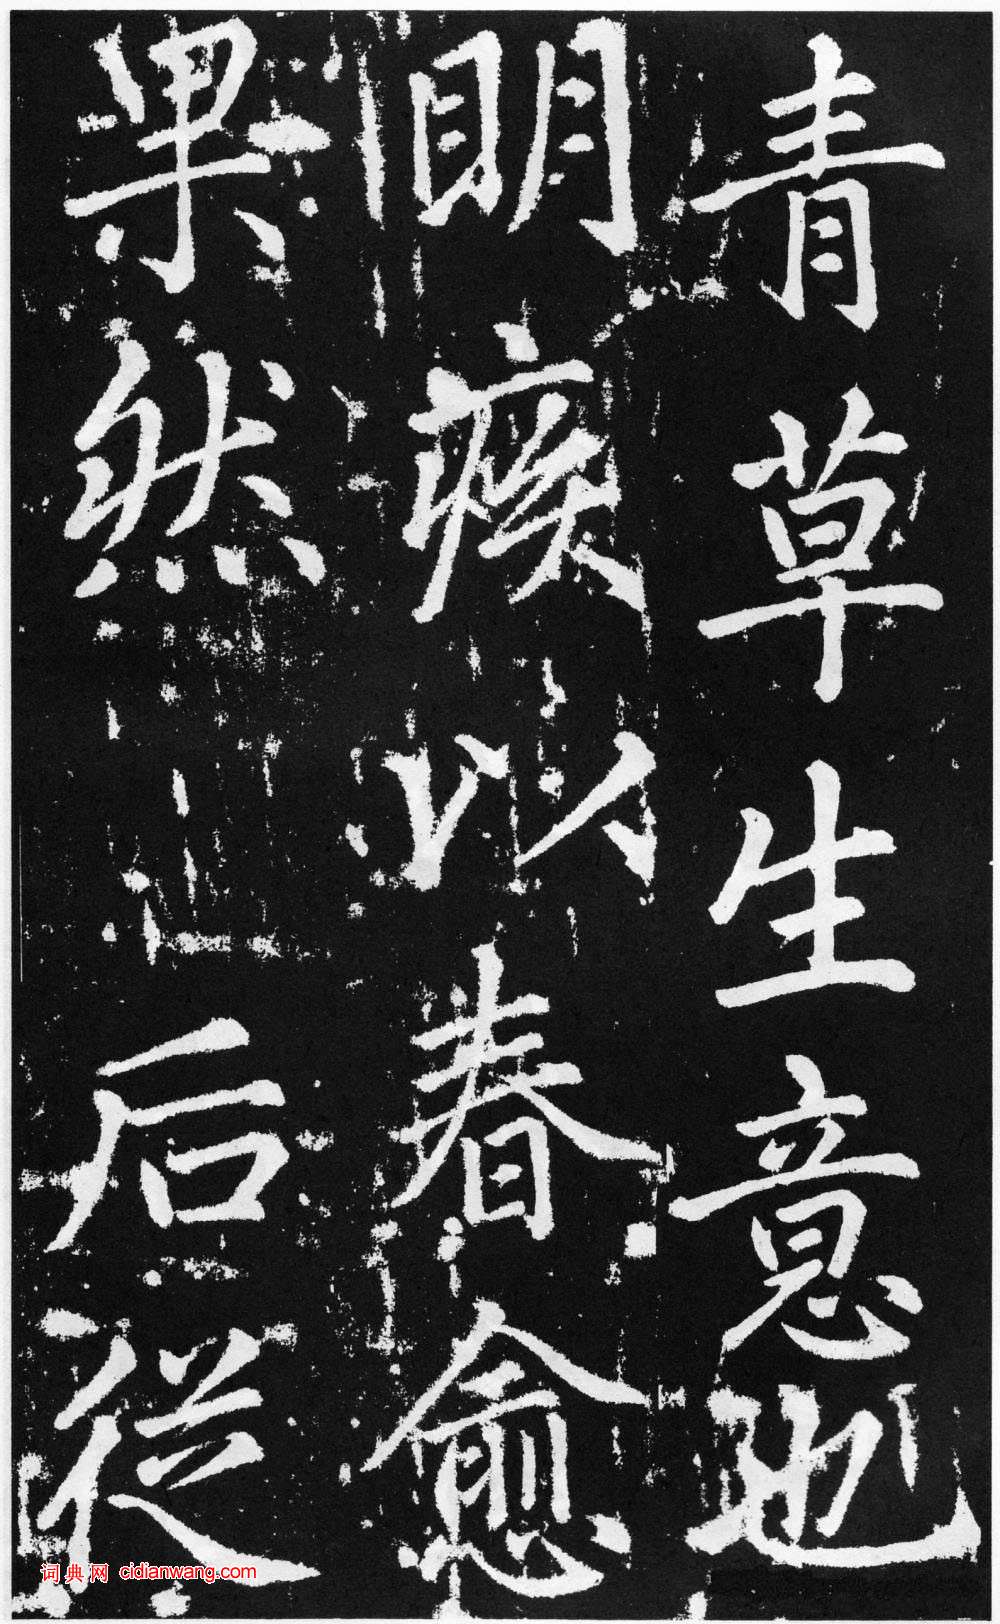 青草生意也
明疾以春愈
果然后從
词典网 cidianwang.com